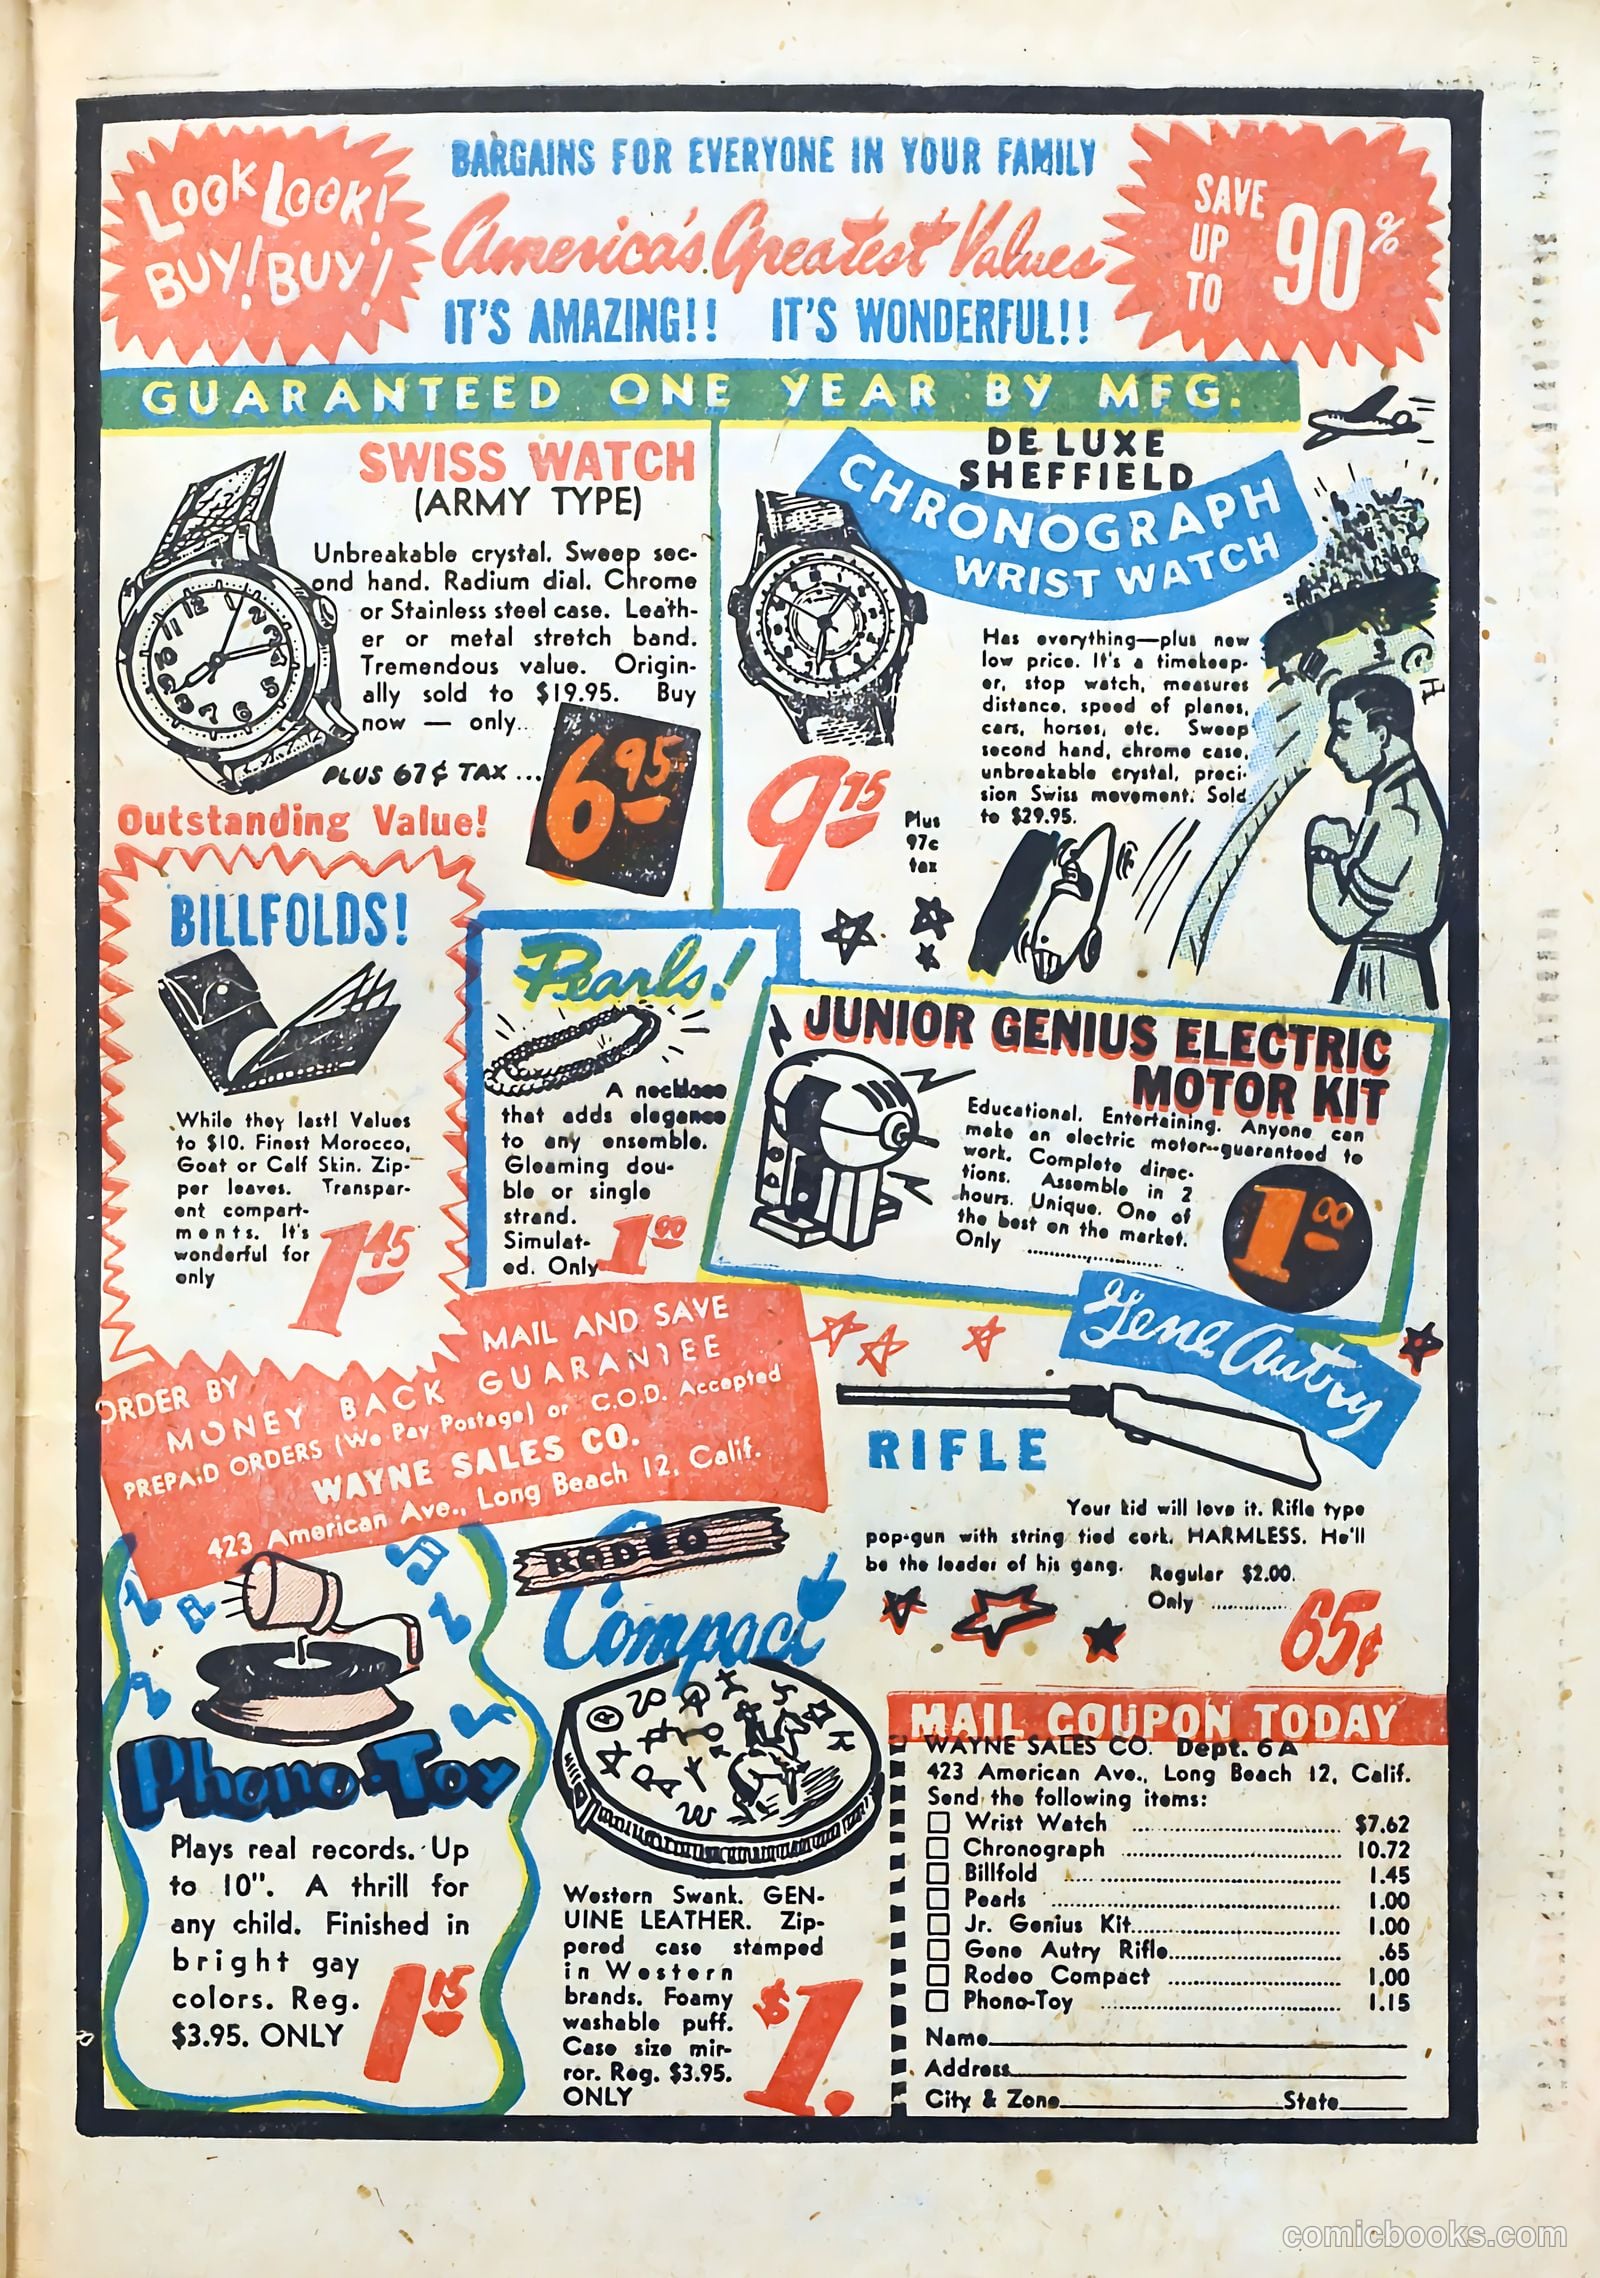 LOOK LOOK!
BUY! BUY!
BARGAINS FOR EVERYONE IN YOUR FAMILY
America's Greatest Values
IT'S AMAZING!! IT'S WONDERFUL!!
SAVE
UP
TO
90%
GUARANTEED ONE YEAR BY MFG.
SWISS WATCH
(ARMY TYPE)
Unbreakable crystal. Sweep sec-
ond hand. Radium dial. Chrome
or Stainless steel case. Leath-
er or metal stretch band.
Tremendous value. Origin-
ally sold to $19.95. Buy
now — only...
PLUS 67¢ TAX ...
6 95
Outstanding Value!
DE LUXE
SHEFFIELD
CHRONOGRAPH
WRIST WATCH
Has everything—plus new
low price. It's a timekeep-
er, stop watch, measures
distance, speed of planes,
cars, horses, etc. Sweep
second hand, chrome case,
unbreakable crystal, preci-
sion Swiss movement. Sold
to $29.95.
9 75
Plus
97c
tax
BILLFOLDS!
While they last! Values
to $10. Finest Morocco,
Goat or Calf Skin. Zip-
per leaves. Transpar-
ent compart-
ments. It's
wonderful for
only
1 45
Pearls!
A necklace
that adds elegance
to any ensemble.
Gleaming dou-
ble or single
strand.
Simulat-
ed. Only
1 00
JUNIOR GENIUS ELECTRIC
MOTOR KIT
Educational. Entertaining. Anyone can
make an electric motor--guaranteed to
work. Complete direc-
tions. Assemble in 2
hours. Unique. One of
the best on the market.
Only ................
1 00
ORDER BY MAIL AND SAVE
MONEY BACK GUARANTEE
PREPAID ORDERS (We Pay Postage) or C.O.D. Accepted
WAYNE SALES CO.
423 American Ave., Long Beach 12, Calif.
Gene Autry
RIFLE
Your kid will love it. Rifle type
pop-gun with string tied cork. HARMLESS. He'll
be the leader of his gang. Regular $2.00.
Only ............
65¢
Phono-Toy
Plays real records. Up
to 10". A thrill for
any child. Finished in
bright gay
colors. Reg.
$3.95. ONLY
1 15
RODEO
Compact
Western Swank. GEN-
UINE LEATHER. Zip-
pered case stamped
in Western
brands. Foamy
washable puff.
Case size mir-
ror. Reg. $3.95.
ONLY
$1.
MAIL COUPON TODAY
WAYNE SALES CO. Dept. 6A
423 American Ave., Long Beach 12, Calif.
Send the following items:
Wrist Watch ........ $7.62
Chronograph ........ 10.72
Billfold ........ 1.45
Pearls ........ 1.00
Jr. Genius Kit........ 1.00
Gene Autry Rifle........ .65
Rodeo Compact ........ 1.00
Phono-Toy ........ 1.15
Name
Address
City & Zone State
comicbooks.com